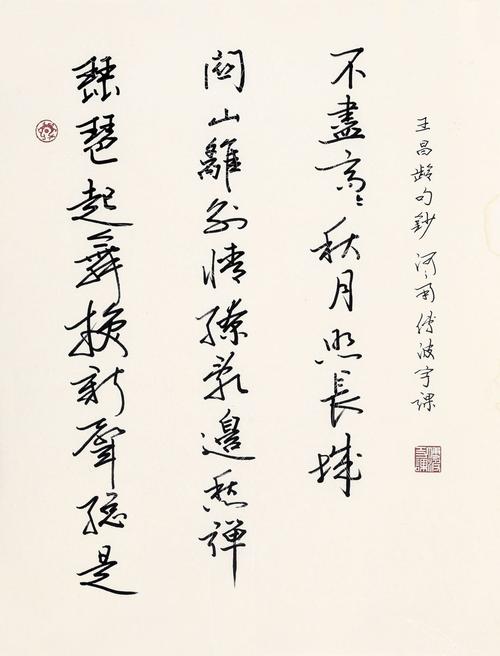 琵琶起舞換新聲總是
關山離別情繚亂邊愁彈
不盡高々秋月照長城
王昌齡句鈔 河南傅波宇課